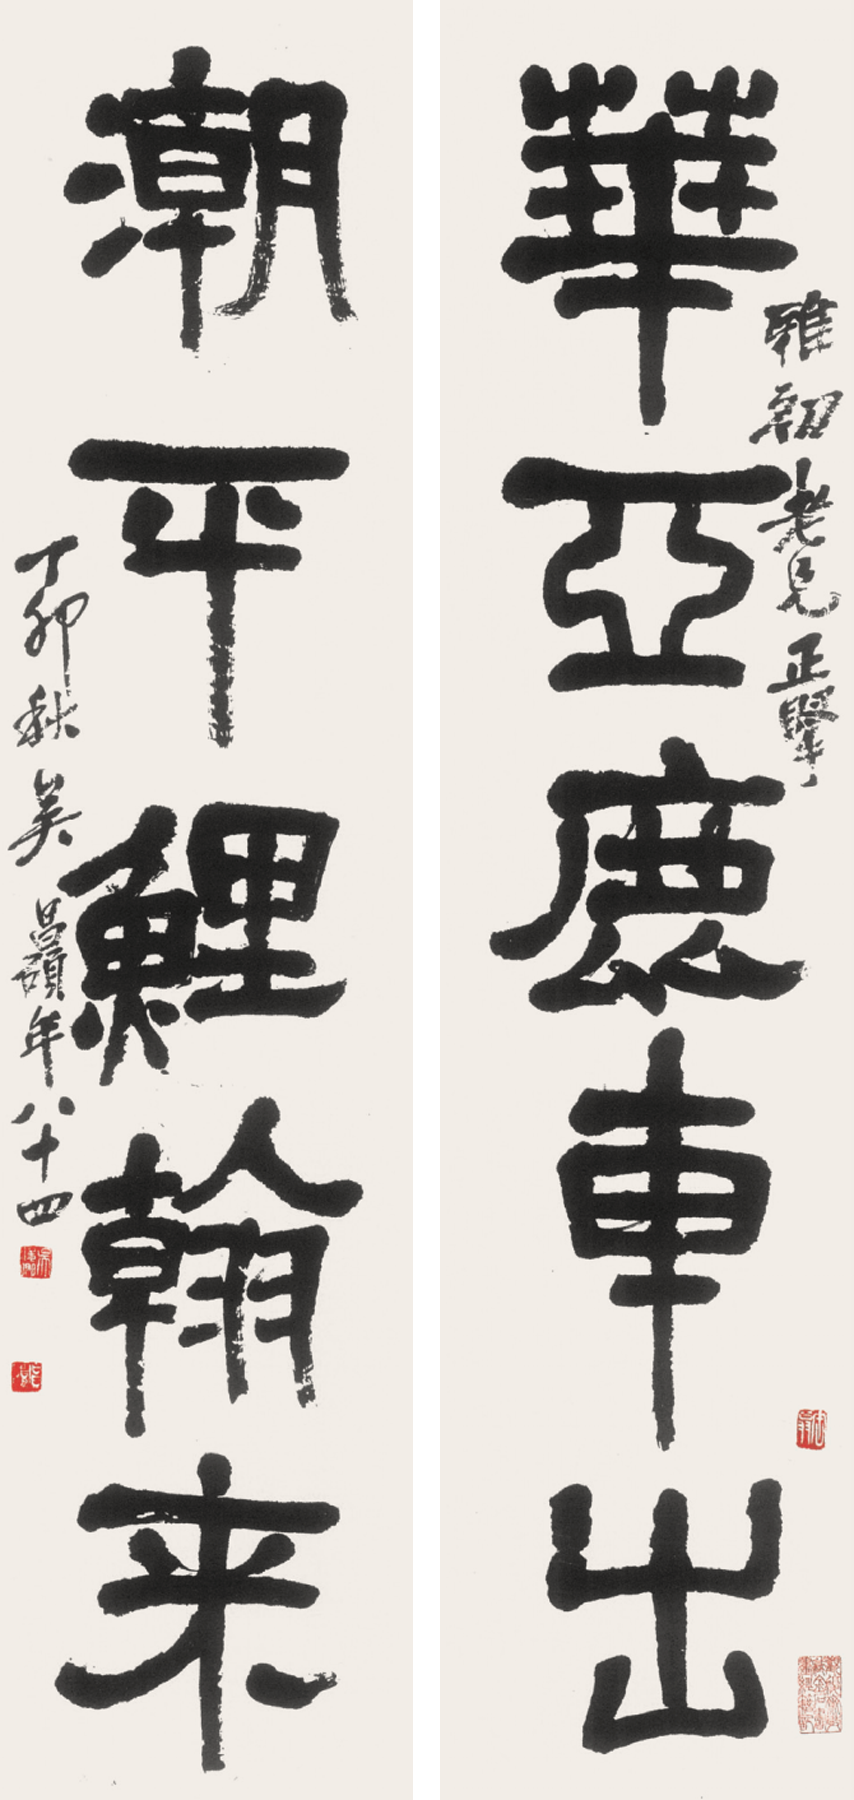 華亞鹿車出
雅老兄正掔
潮平鯉翰来
丁卯秋吴昌碩年八十四